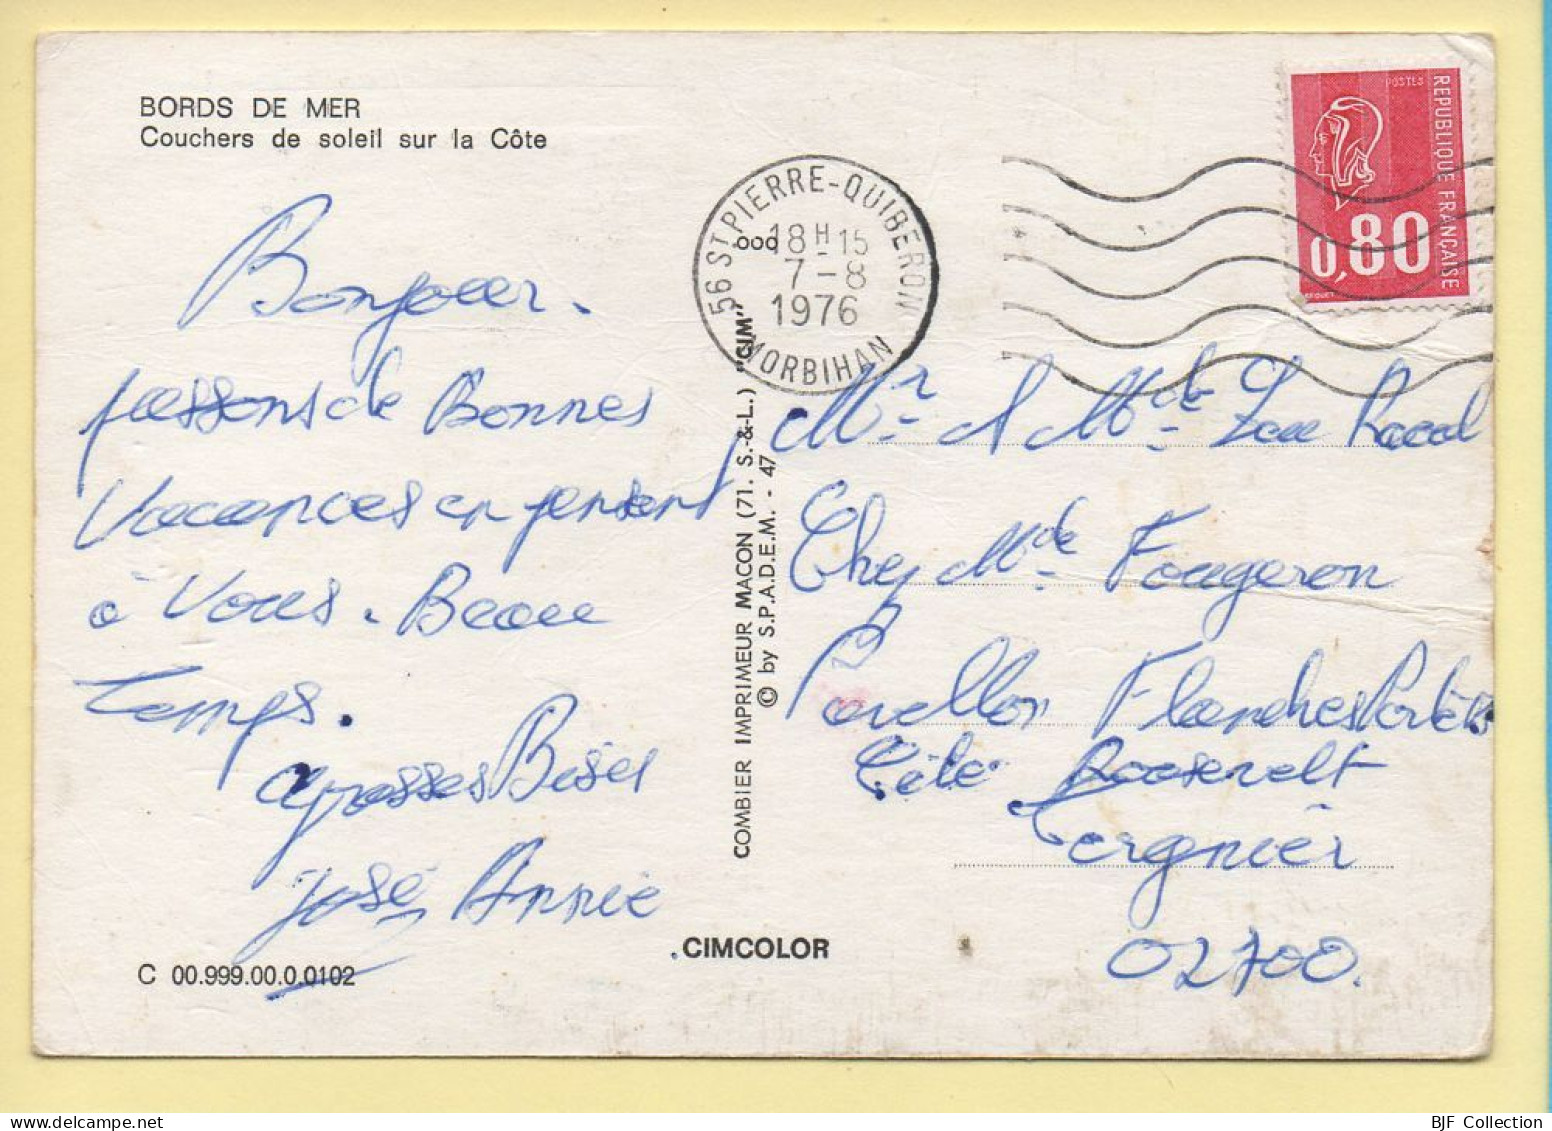 BORDS DE MER
Couchers de soleil sur la Côte
Bonjour.
passons de Bonnes
Vacances en pensent
à Vous. Beau
temps.
grosses Bises
José Annie
C 00.999.00.0.0102
COMBIER IMPRIMEUR MACON (71. S.-&-L.) "CIM"
© by S.P.A.D.E.M. - 47
CIMCOLOR
56 ST PIERRE-QUIBERON
18H-15
7-8
1976
MORBIHAN
POSTES
REPUBLIQUE FRANÇAISE
0,80
BEQUET
Mr & Mde Raoul
Chez Mde Fougeron
Pavillon Flandres
Cité Roosevelt
Tergnier
02700.
BJF Collection